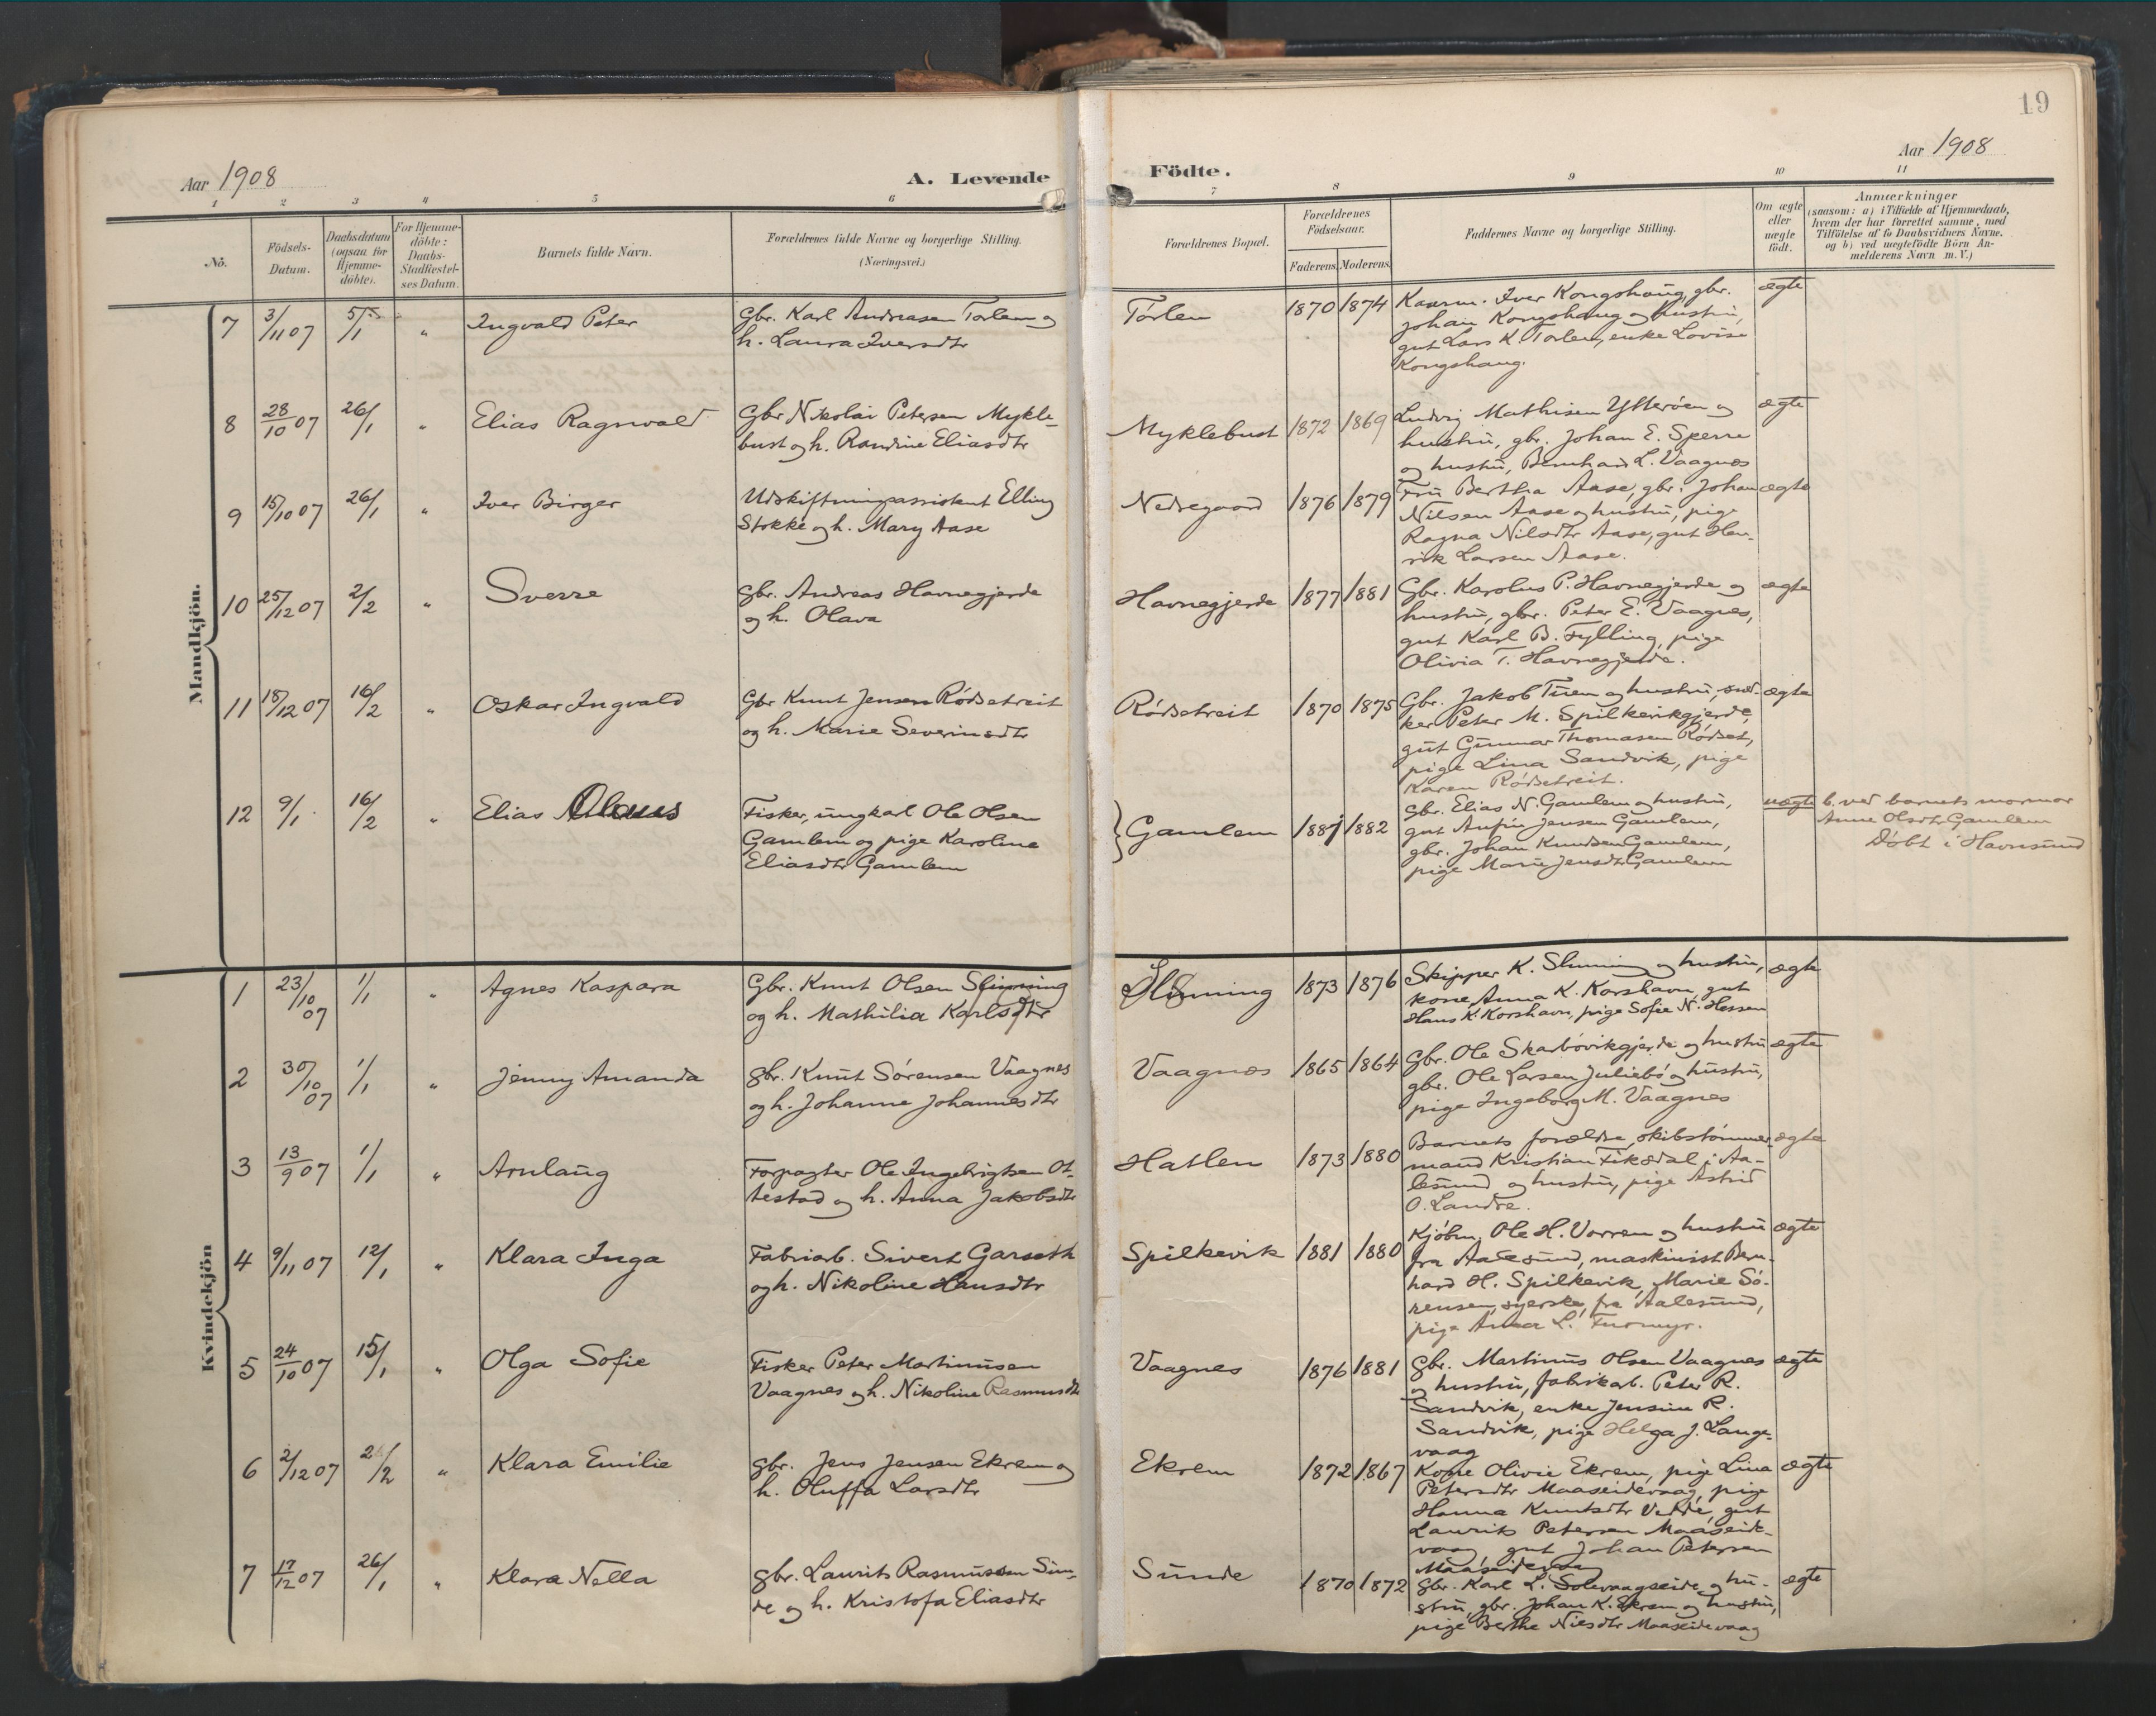 19
Aar 1908
A. Levende
Födte.
Aar 1908
1 2 3 4 5 6 7 8 9 10 11
No.
Födsels-
Datum.
Daabsdatum
(ogsaa for
Hjemme-
döbte).
For Hjemme-
döbte:
Daabs-
Stadfæstel-
ses Datum.
Barnets fulde Navn.
Forældrenes fulde Navne og borgerlige Stilling.
(Næringsvei.)
Forældrenes Bopæl.
Forældrenes
Födselsaar.
Faderens. Moderens.
Faddernes Navne og borgerlige Stilling.
Om ægte
eller
uægte
födt.
Anmærkninger
(saasom: a) i Tilfælde af Hjemmedaab,
hvem der har forrettet samme, med
Tilföielse af to Daabsvidners Navne.
og b) ved uægtefödte Börn An-
melderens Navn m. V.)
Mandkjön.
7 3/11 07 5/1 " Ingvald Peter
Gbr. Karl Andreasen Torlem og
h. Laura Iversdtr
Torlen 1870 1874
Kaarm. Iver Kongshaug, gbr.
Johan Kongshaug og hustru,
gut Lars K. Torlen, enke Lovise
Kongshaug.
ægte
8 28/10 07 26/1 " Elias Ragnvald
Gbr Nikolai Petersen Mykle-
bust og h. Randine Eliasdtr
Myklebust 1872 1869
Ludvig Mathisen Ytterøen og
hustru, gbr. Johan E. Sperre
og hustru, Bernhard L. Vaagnes
ægte
9 15/10 07 26/1 " Iver Birger
Udskiftningsassistent Elling
Stokke og h. Mary Aase
Nedregaard 1876 1879
Fru Bertha Aase, gbr. Johan
Nilsen Aase og hustru, pige
Ragna Nilsdtr Aase, gut Hen-
rik Larsen Aase.
ægte
10 25/12 07 2/2 " Sverre
Gbr. Andreas Havnegjerde
og h. Olava
Havnegjerde 1877 1881
Gbr. Karolus P. Havnegjerde og
hustru, gbr. Peter E. Vaagnes,
gut Karl B. Fylling, pige
Olivia T. Havnegjerde.
ægte
11 18/12 07 16/2 " Oskar Ingvald
Gbr Knut Jensen Rødsetreit
og h. Marie Severinsdtr
Rødsetreit 1870 1875
Gbr. Jakob Tuen og hustru, snd-
ker Peter M. Spilkevikgjerde,
gut Gunnar Thomasen Rødset,
pige Lina Sandvik, pige
Karen Rødsetreit.
ægte
12 9/1 16/2 " Elias Olaus
Fisker, ungkarl Ole Olsen
Gamlem og pige Karoline
Eliasdtr Gamlem
Gamlem 1881 1882
Gbr. Elias N. Gamlem og hustru,
gut Anfin Jensen Gamlem,
gbr. Johan Knudsen Gamlem,
pige Marie Jensdtr Gamlem
uægte
b. ved barnets mormor
Anne Olsdtr Gamlem
Døbt i Havnsund
Kvindekjön
1 23/10 07 1/1 " Agnes Kaspara
Gbr. Knut Olsen Slinning
og h. Mathilia Karlsdtr
Slinning 1873 1876
Skipper K. Slinning og hustru,
kone Anna K. Korshavn, gut
Hans K. Korshavn, pige Sofie N. Hessen
ægte
2 30/10 07 1/1 " Jenny Amanda
gbr. Knut Sørensen Vaagnes
og h. Johanne Johannesdtr
Vaagnes 1865 1864
Gbr. Ole Skarbøvikgjerde og hustru
gbr. Ole Larsen Juliebø og hustru,
pige Ingeborg M. Vaagnes
ægte
3 13/9 07 1/1 " Arnlaug
Forpagter Ole Ingebrigtsen Ot-
testad og h. Anna Jakobsdtr
Hatlen 1873 1880
Barnets forældre, skibstømmer-
mand Kristian Fiksdal i Aa-
lesund og hustru, pige Astrid
O. Landre.
ægte
4 9/11 07 12/1 " Klara Inga
Fabriarb. Sivert Garseth
og h. Nikoline Hansdtr
Spilkevik 1881 1880
Kjøbm. Ole H. Vorren og hustru
fra Aalesund, maskinist Bern-
hard H. Spilkevik, Marie Sø-
rensen, syerske, fra Aalesund,
pige Anna L. Furmyr.
ægte
5 24/10 07 15/1 " Olga Sofie
Fisker Peter Martinusen
Vaagnes og h. Nikoline Rasmusdtr
Vaagnes 1876 1881
Gbr. Martinus Olsen Vaagnes
og hustru, fabrikarb. Peter R.
Sandvik, enke Jensine R.
Sandvik, pige Helga J. Lange-
vaag
ægte
6 2/12 07 2/2 " Klara Emilie
gbr. Jens Jensen Ekrem og
h. Oluffa Larsdtr
Ekrem 1872 1867
Kone Olivie Ekrem, pige Lina
Petersdtr Maaseidevaag, pige
Hanna Knutsdtr Vedde, gut
Laurits Petersen Maaseide-
vaag, gut Johan Petersen
Maaseidevaag
ægte
7 17/12 07 26/1 " Klara Nella
gbr. Laurits Rasmussen Sun-
de og h. Kristofa Eliasdtr
Sunde 1870 1872
Gbr. Karl L. Solevaagseide og hu-
stru, gbr. Johan K. Ekrem og hustru,
pige Berthe Nilsdtr Maaseidevaag
ægte